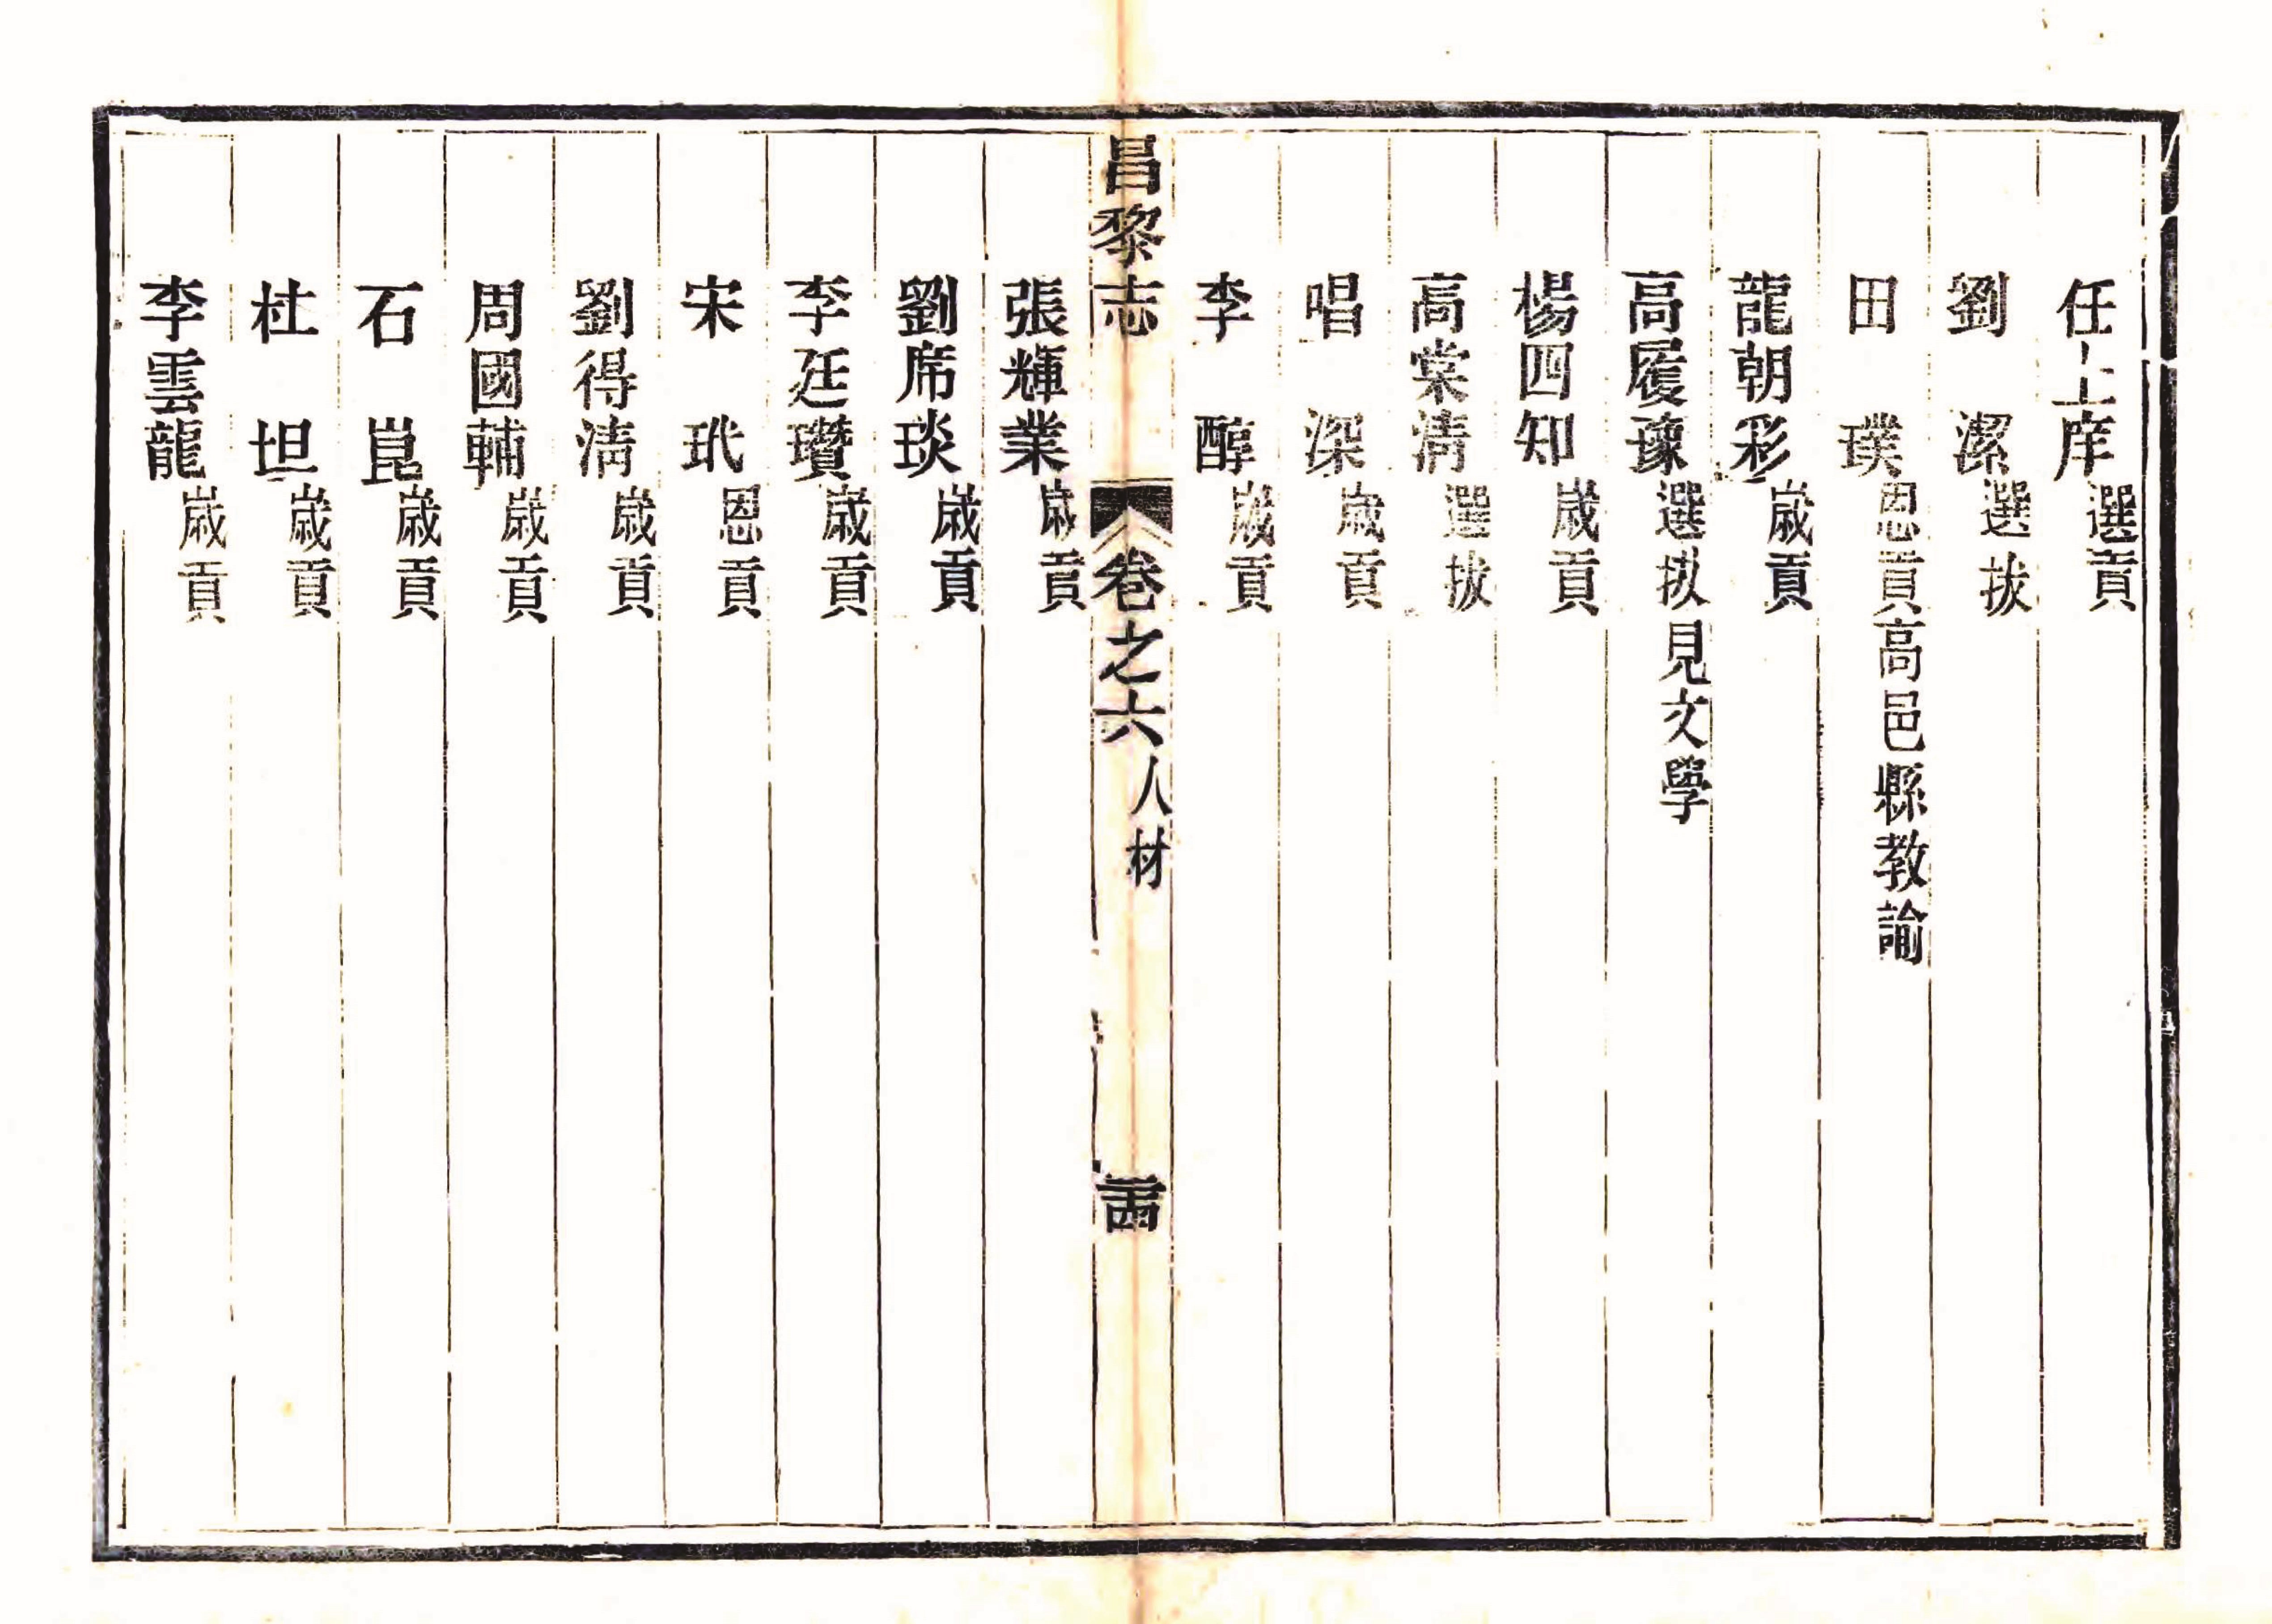 任上庠選貢
劉潔選拔
田璞恩貢高邑縣教諭
龍朝彩歲貢
高履謙選拔見文學
楊四知歲貢
高棠清選拔
唱深歲貢
李醇歲貢
昌黎志 卷之六人材
張輝業歲貢
劉席琰歲貢
李廷瓚歲貢
宋玳恩貢
劉得清歲貢
周國輔歲貢
石崑歲貢
杜坦歲貢
李雲龍歲貢